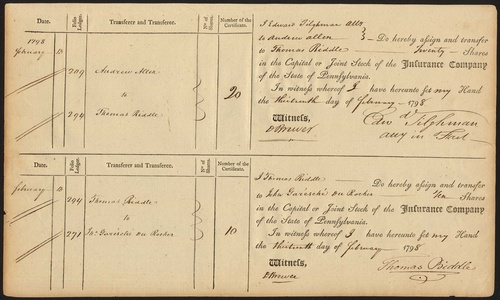 Date.
Folio Ledger.
Transferer and Transferee.
N.º of Shares.
Number of the Certificate.
1798
February 13
209 Andrew Allen
to
294 Thomas Biddle
20
I Edward Tilghman Atty
to Andrew Allen
Do hereby assign and transfer
to Thomas Biddle Twenty Shares
in the Capital or Joint Stock of the Insurance Company
of the State of Pennsylvania.
In witness whereof I have hereunto set my Hand
the thirteenth day of February 1798
Witness,
Edw.d Tilghman
atty in Fact
Date.
Folio Ledger.
Transferer and Transferee.
N.º of Shares.
Number of the Certificate.
February 13
294 Thomas Biddle
to
271 Jn.º
10
I Thomas Biddle
Do hereby assign and transfer
to John Ten Shares
in the Capital or Joint Stock of the Insurance Company
of the State of Pennsylvania.
In witness whereof I have hereunto set my Hand
the thirteenth day of February 1798
Witness,
Thomas Biddle